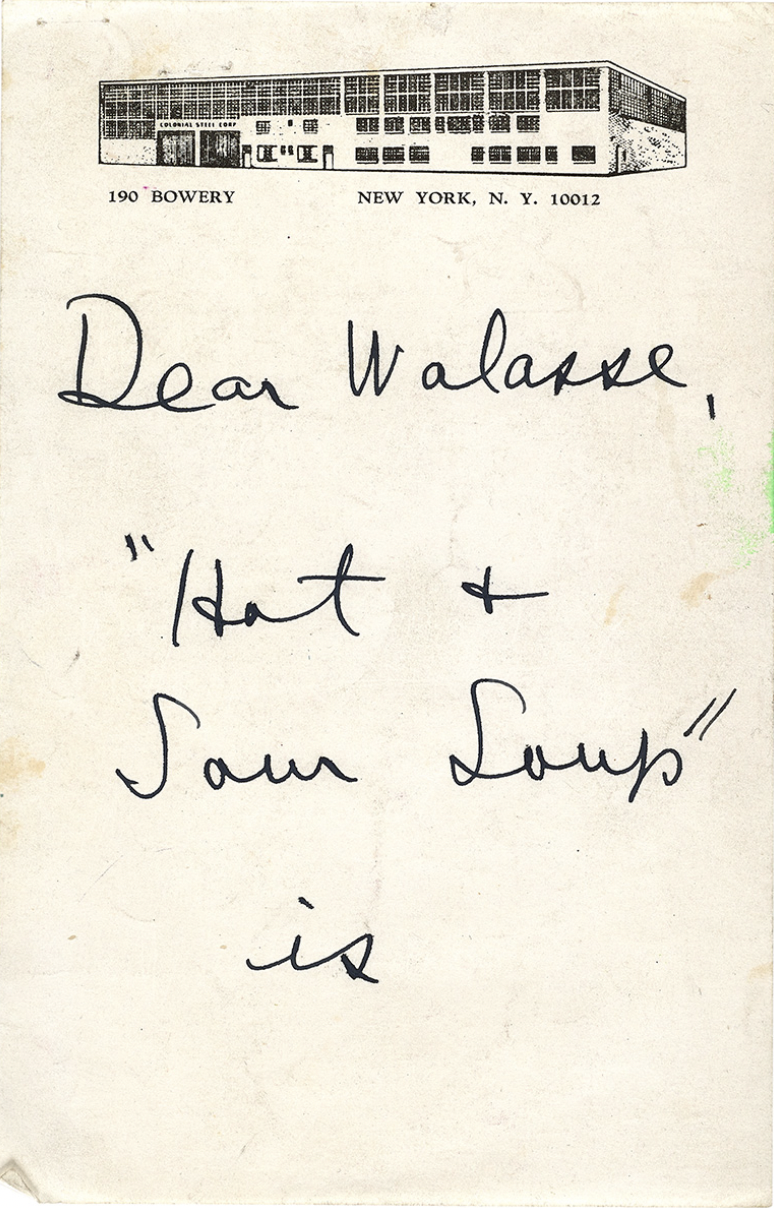 COLONIAL STEEL CORP
190 BOWERY NEW YORK, N. Y. 10012
Dear Walasse,
"Hot +
Sour Soup"
is